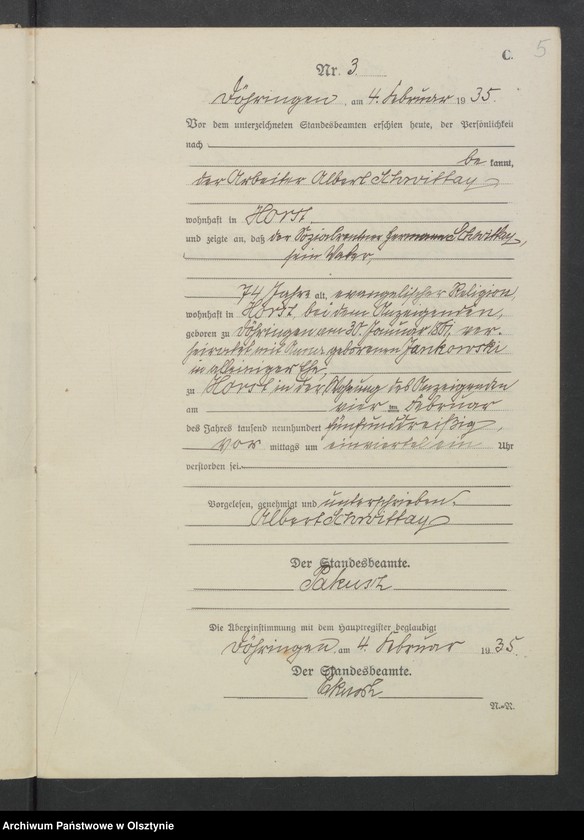 5
C.
Nr. 3
Döhringen, am 4. Februar 1935.
Vor dem unterzeichneten Standesbeamten erschien heute, der Persönlichkeit
nach
be kannt,
der Arbeiter Albert Schwittay
wohnhaft in Horst
und zeigte an, daß der Sozialrentner Hermann Schwittay,
sein Vater,
74 Jahre alt, evangelischer Religion,
wohnhaft in Horst, bei dem Anzeigenden,
geboren zu Döhringen am 30. Januar 1861, ver-
heiratet mit Anna geborenen Jankowski
in alleiniger Ehe,
zu Horst in der Wohnung des Anzeigenden
am vier ten Februar
des Jahres tausend neunhundert fünfunddreißig,
vor mittags um einviertel ein Uhr
verstorben sei.
Vorgelesen, genehmigt und unterschrieben.
Albert Schwittay
Der Standesbeamte.
Die Übereinstimmung mit dem Hauptregister beglaubigt
Döhringen, am 4. Februar 1935.
Der Standesbeamte.
N.-R.
Archiwum Państwowe w Olsztynie